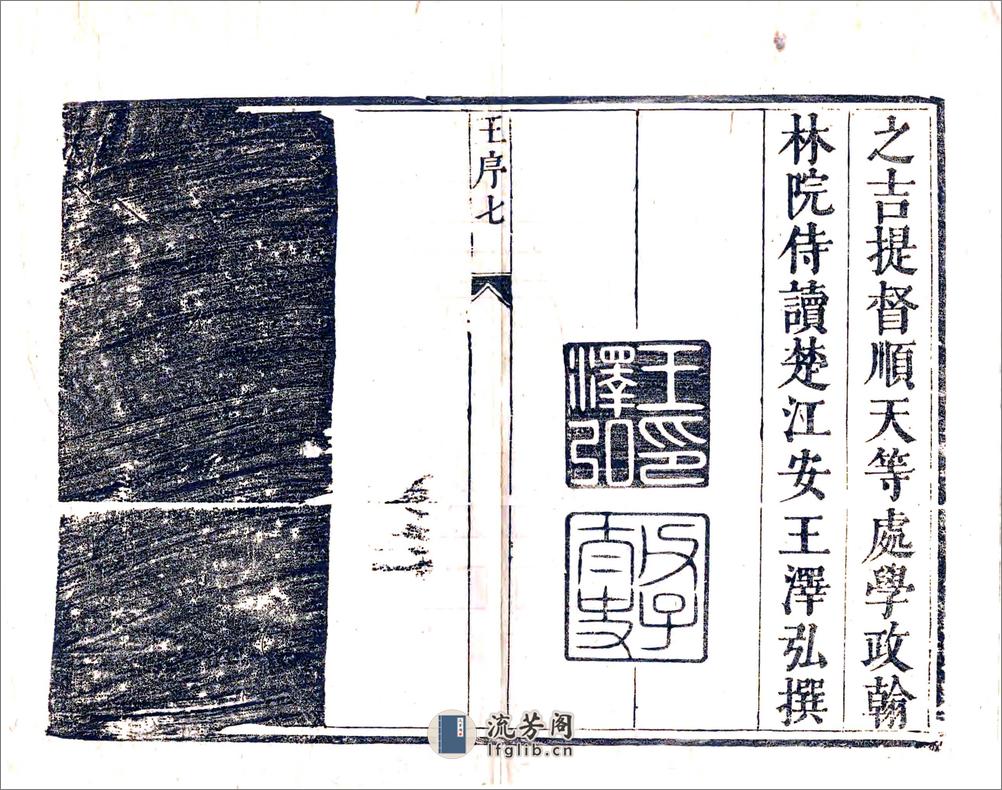 之吉提督順天等處學政翰
林院侍讀楚江安王澤弘撰
王印澤弘
父子太史
王序七
流芳阁
lfglib.cn